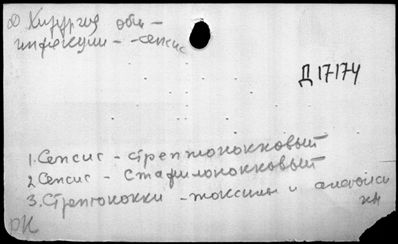 Хирургия общ -
инфекции - сепсис
Д 17174
1. Сепсис - стрептококковый
2 Сепсис - стафилококковый
3. Стрептококки - токсины и